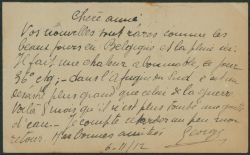 Chère amie,
Vos nouvelles sont rares comme les
beaux jours en Belgique et la pluie ici.
Il fait une chaleur abominable, ce jour
36° ctg; dans l'Afrique du Sud c'est un
désastre plus grand que celui de la guerre
voilà 5 mois qu'il n'est plus tombé une goutte
d'eau. Je compte et au peu mon
retour. Mes bonnes amitiés
Georges
6-11/12